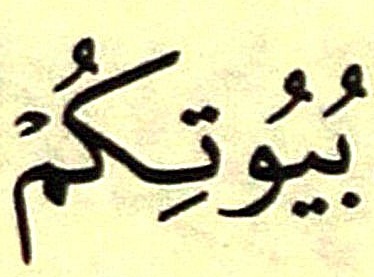 بُيُوتِكُمْ